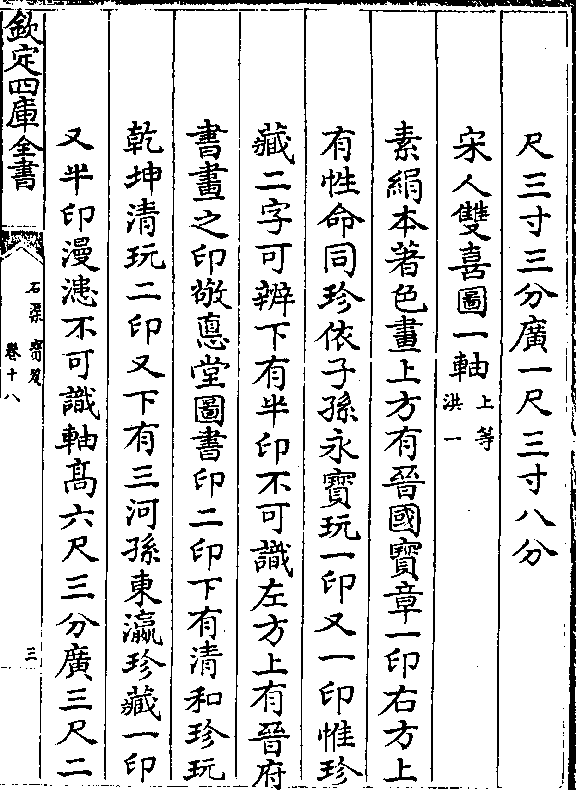 尺三寸三分廣一尺三寸八分
宋人雙喜圖一軸上等洪一
素絹本著色畫上方有晉國寶章一印右方上
有性命同珍依子孫永寶玩一印又一印惟珍
藏二字可辨下有半印不可識左方上有晉府
書畫之印敬悳堂圖書印二印下有清和珍玩
乾坤清玩二印又下有三河孫東瀛珍藏一印
又半印漫漶不可識軸髙六尺三分廣三尺二
欽定四庫全書
石渠寳笈
卷十八
三